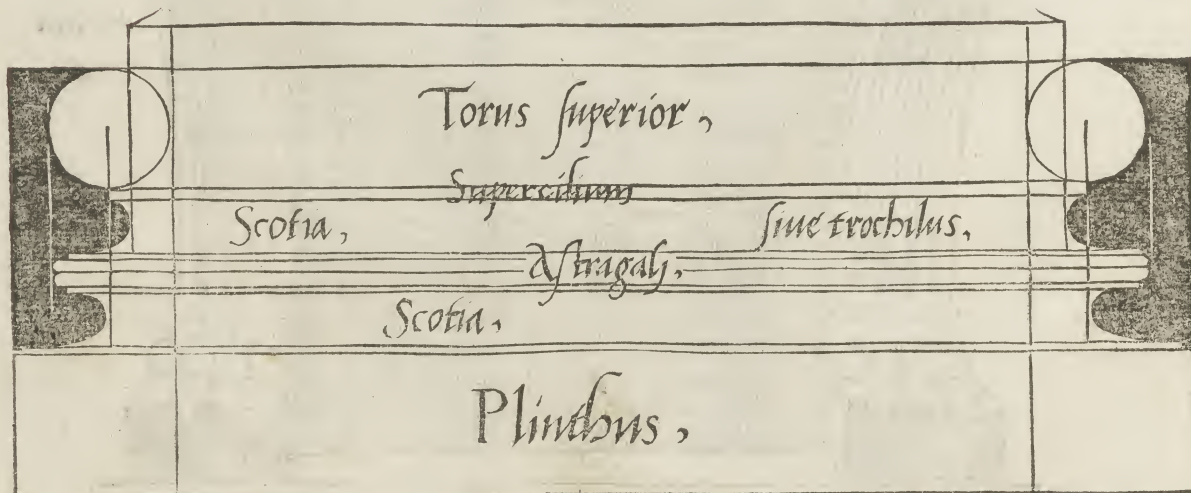 Torus ſuperior,
Supercilium
Scotia, ſiue trochilus,
Aſtragali,
Scotia,
Plinthus,